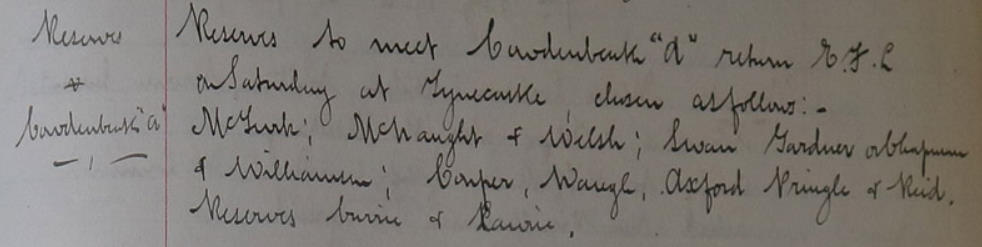 Reserves
v
Cowdenbeath "A"
Reserves to meet Cowdenbeath "A" return E.F.L
on Saturday at Tynecastle, chosen as follows:-
McTurk; McNaught & Welsh; Swan Gardner or Chapman
& Williamson; Couper, Waugh, Oxford Pringle & Reid.
Reserves Currie & Lawrie.